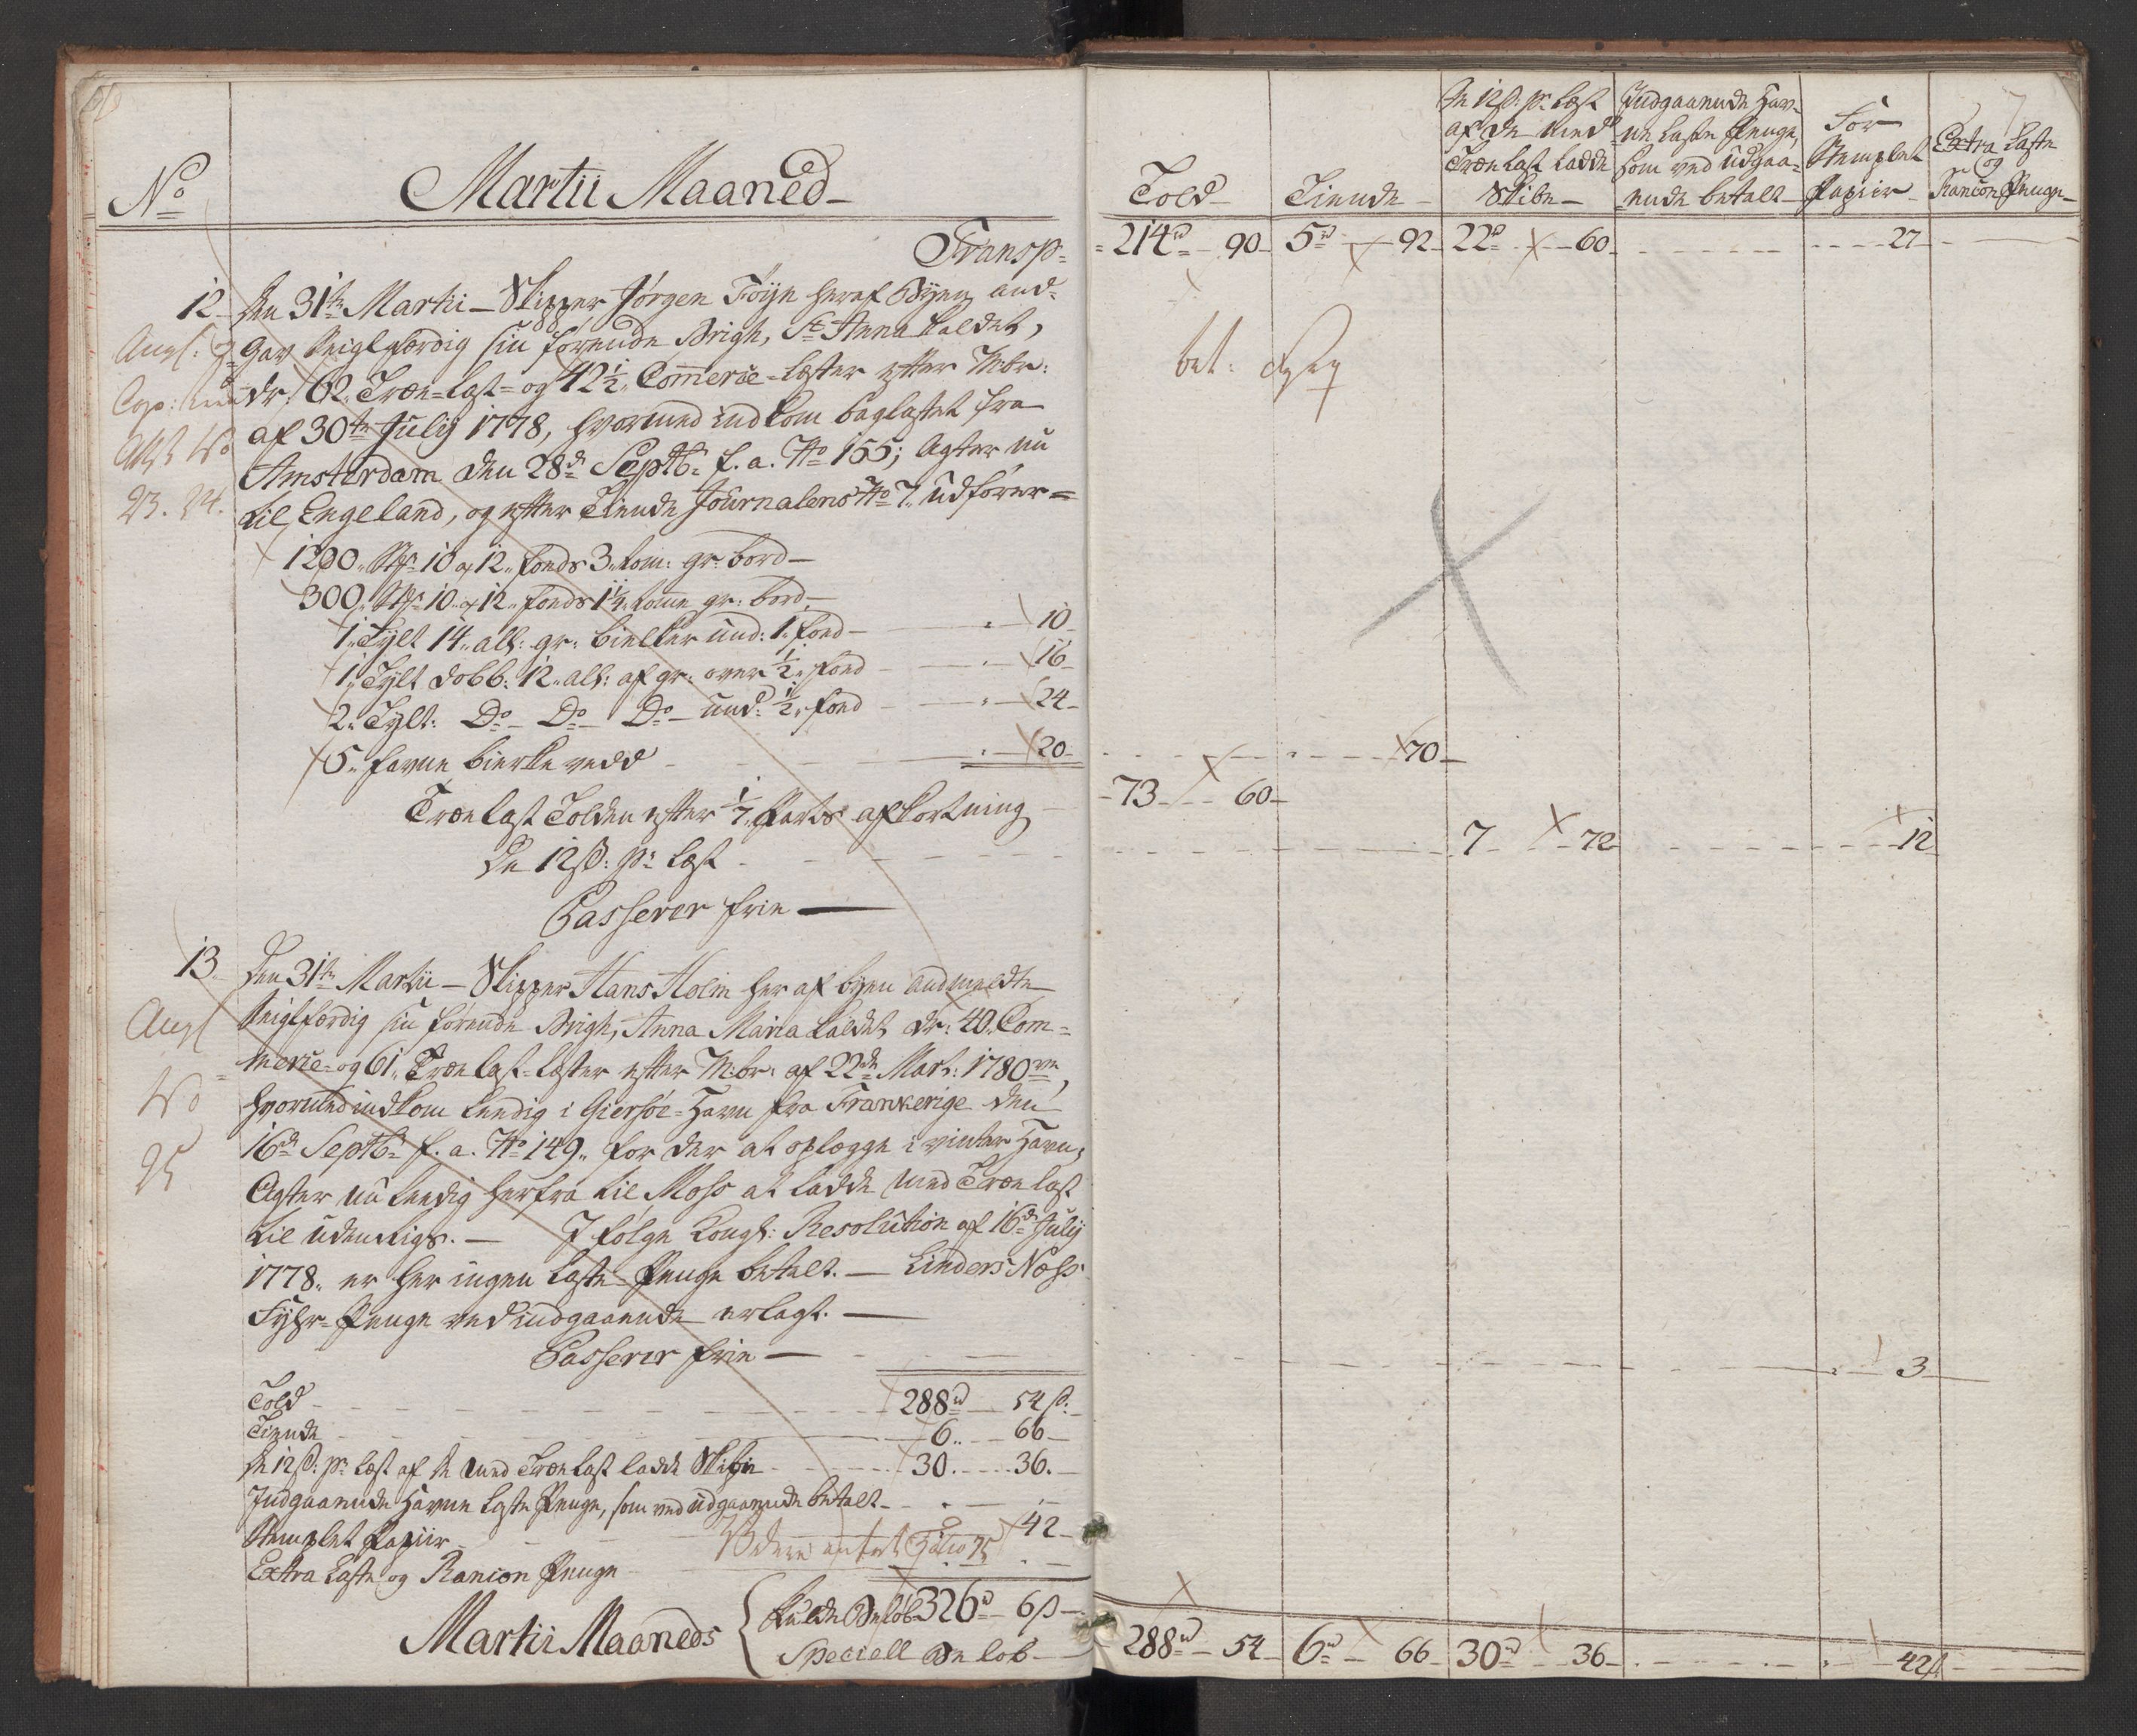 No
Martii Maaned
Transp=
12 Den 31te Martii – Skipper Jørgen Føyn her af Byen and=
gav Seiglfærdig sin førende Brigh, St Anna kaldet,
dr: 62 Træ=Last= og 42½ Commerce=Læster efter M:br:
af 30te Julij 1778, hvormed indkom baglastet fra
Amsterdam den 28de Septbr f. a. No 155; Agter nu
til Engeland, og efter Tiende Journalens No 7 udfører=
1200 St 10 a 12 fods 3 tom: gr: bord
300 St 10 a 12 fods 1¼ tomme gr: bord
1 Tylt 14 all: gr: bielker und: 1 fod 10
1 Tylt dobb: 12 all: af gr: over ½ fod 16
2 Tylt: Do Do Do und: ½ fod 24
5 favne bierke vedd 20
Trælast Tolden efter 1/7 Parts afkortning
De 12 s: pr Læst
Passerer frie
13 Den 31te Martii – Skipper Hans Holm her af byen andmældte
Seiglfærdig sin førende Brigh, Anna Maria kaldet dr: 40 Com=
merce= og 61 Trælast=Læster efter M:br: af 22de Mart: 1780ve,
hvormed indkom ledig i Giersøe=Havn fra Frankerige den
16de Septbr f. a. No 149 for der at oplægge i vinter Havn,
Agter nu ledig herfra til Moss at ladde med Trælast
til udenrigs. – I følge Kongl: Resolution af 16de Julij
1778 er her ingen Laste Penge betalt. – Linders Næss
Fyhr=Penge ved indgaaende erlagt.
Passerer frie
Told 288rd 54 s:
Tiende 6 66
De 12 s: pr Læst af de med Trælast ladde Skibe 30 36
Indgaaende Havne Laste Penge, som ved udgaaende betalt
Stemplet Papiir 42
Extra Laste og Rancon Penge
Martii Maaneds { fulde Beløb 326rd 6 s
Speciell Beløb
Told
Tiende
De 12 s: pr Læst
af de med
Træelast ladde
Skibe
Indgaaende Hav=
ne Laste Penge,
som ved udgaa=
ende betalt
For
Stemplet
Papiir
Extra Laste
og
Rancon Penge
214rd 90 5rd 92 22rd 60 27
bet:
70
73 60
7 72 12
3
288rd 54 6rd 66 30rd 36 42 s